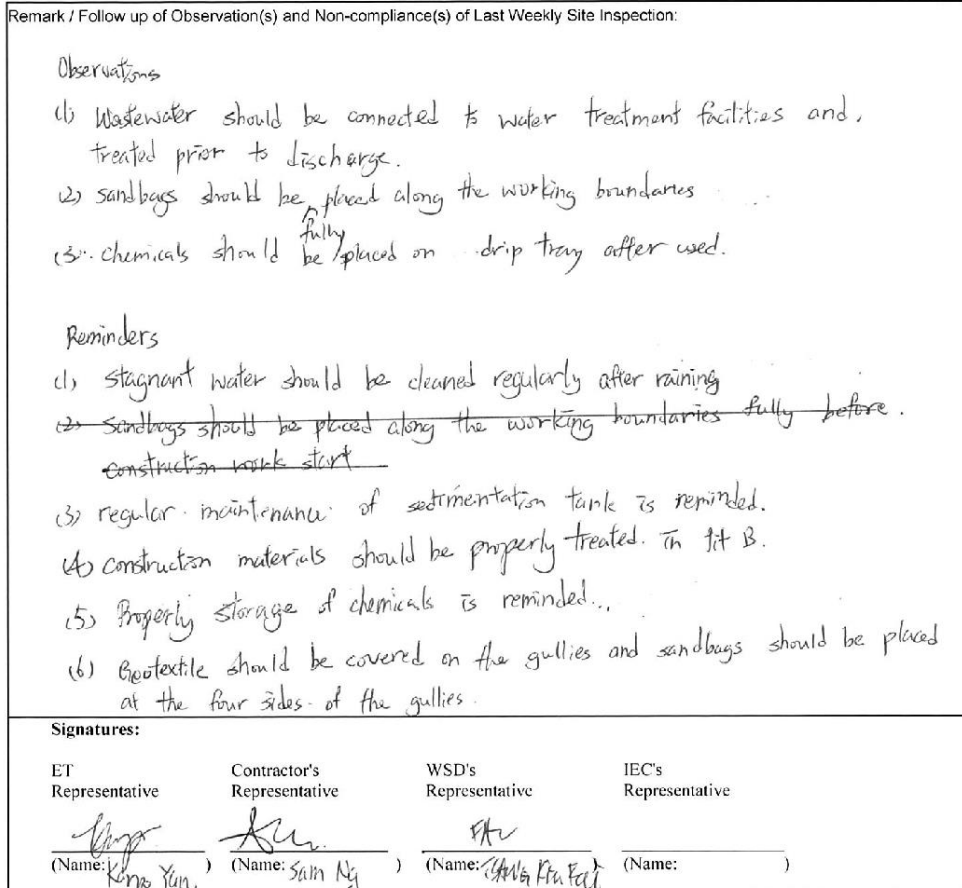 Remark / Follow up of Observation(s) and Non-compliance(s) of Last Weekly Site Inspection:
Observations
(1) Wastewater should be connected to water treatment facilities and.
treated prior to discharge.
(2) sandbags should be placed along the working boundaries
fully
(3) chemicals should be placed on drip tray after used.
Reminders
(1) stagnant water should be cleaned regularly after raining
(2) Sandbags should be placed along the working boundaries fully before.
construction work start
(3) regular maintenance of sedimentation tank is reminded.
(4) construction materials should be properly treated. in Pit B.
(5) Properly storage of chemicals is reminded..
(6) Geotextile should be covered on the gullies and sandbags should be placed
at the four sides of the gullies.
Signatures:
ET Contractor's WSD's IEC's
Representative Representative Representative Representative
(Name: ) (Name: Sam Ng ) (Name: (Name: )